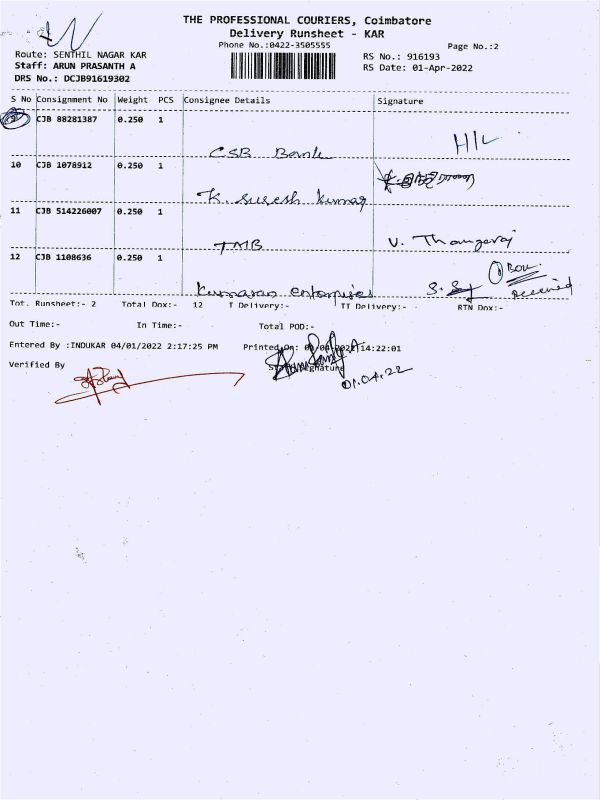 THE PROFESSIONAL COURIERS, Coimbatore
Delivery Runsheet - KAR
Phone No.:0422-3505555
Page No.:2
Route: SENTHIL NAGAR KAR
RS No.: 916193
Staff: ARUN PRASANTH A
RS Date: 01-Apr-2022
DRS No.: DCJB91619302
S No Consignment No Weight PCS Consignee Details Signature
9 CJB 88281387 0.250 1
CSB Bank H/L
10 CJB 1078912 0.250 1
K. Suresh Kumar
11 CJB 514226007 0.250 1
TMB V. Thangaraj
12 CJB 1108636 0.250 1
Kumaran enterprises received
Tot. Runsheet:- 2 Total Dox:- 12 T Delivery:- TT Delivery:- - RTN Dox:-
Out Time:- In Time:- Total POD:-
Entered By :INDUKAR 04/01/2022 2:17:25 PM Printed On: 14:22:01
Verified By Signature
01.04.22